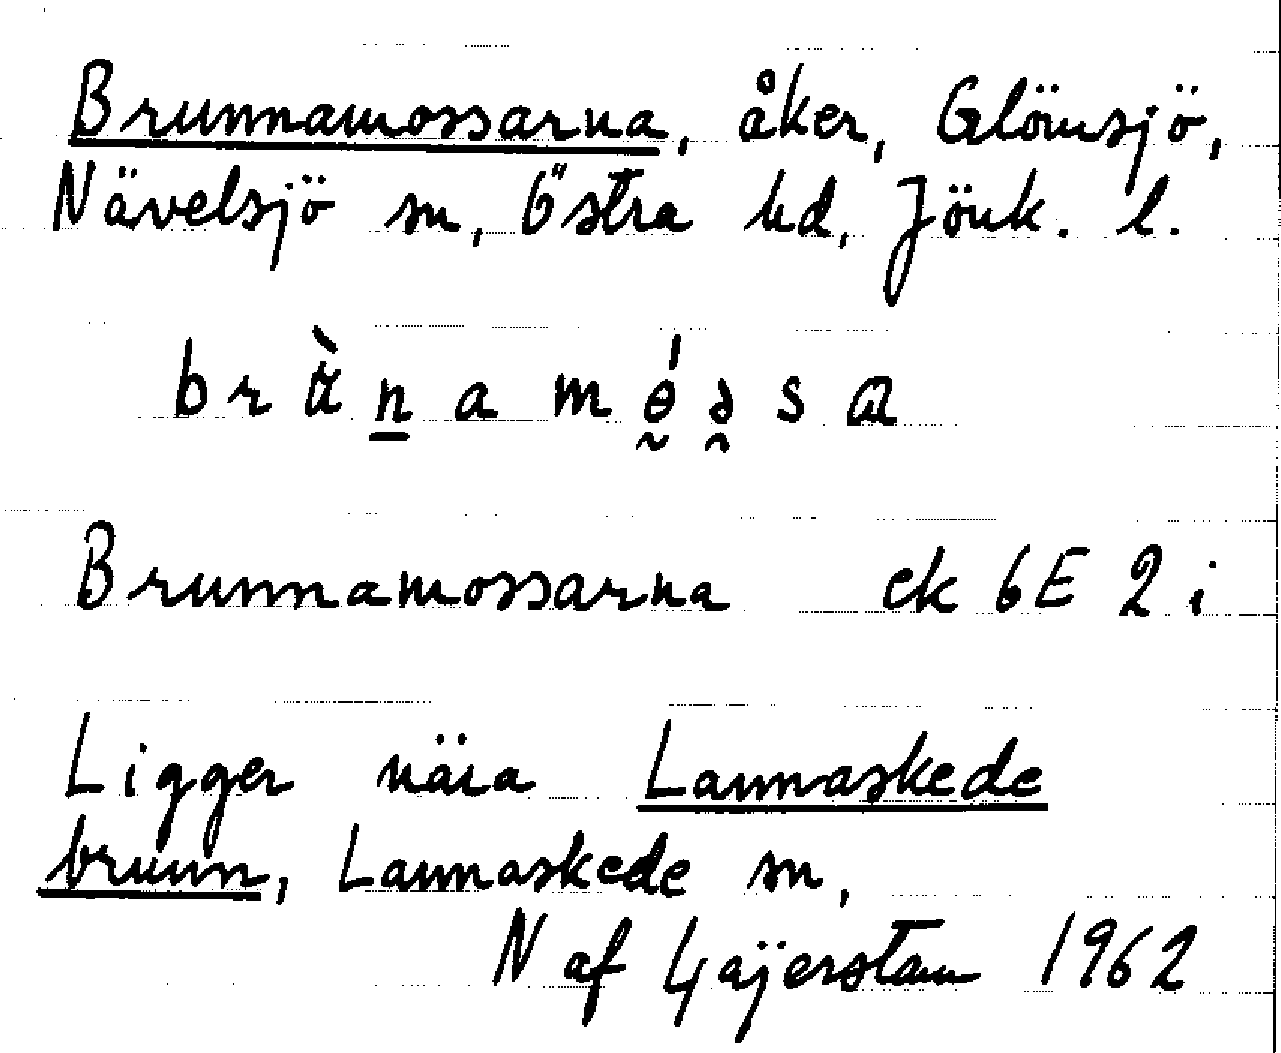 Brunnamossarna, åker, Glömsjö,
Nävelsjö sn, Östra hd, Jönk. l.
Brunnamossarna ek 6E 2 i
Ligger nära Lannaskede
brunn, Lannaskede sn,
N af Gäijerstam 1962